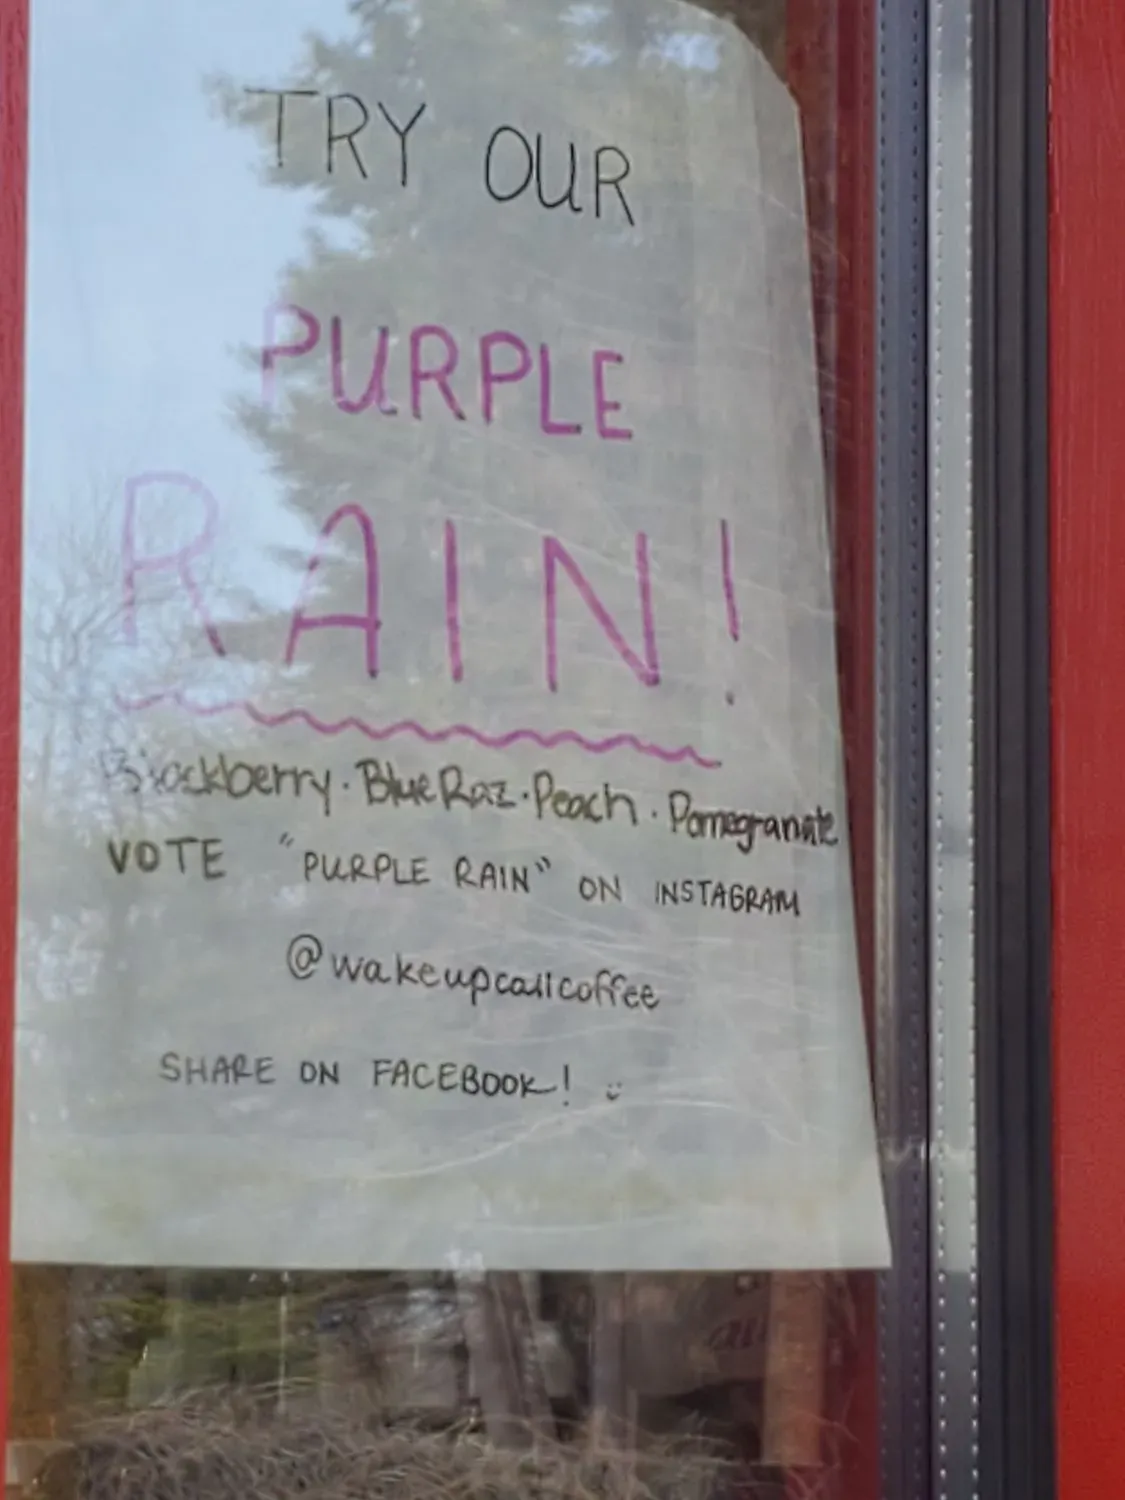 TRY OUR
PURPLE
RAIN!
Blackberry · Blue Raz · Peach · Pomegranate
VOTE "PURPLE RAIN" ON INSTAGRAM
@wakeupcallcoffee
SHARE ON FACEBOOK! :)